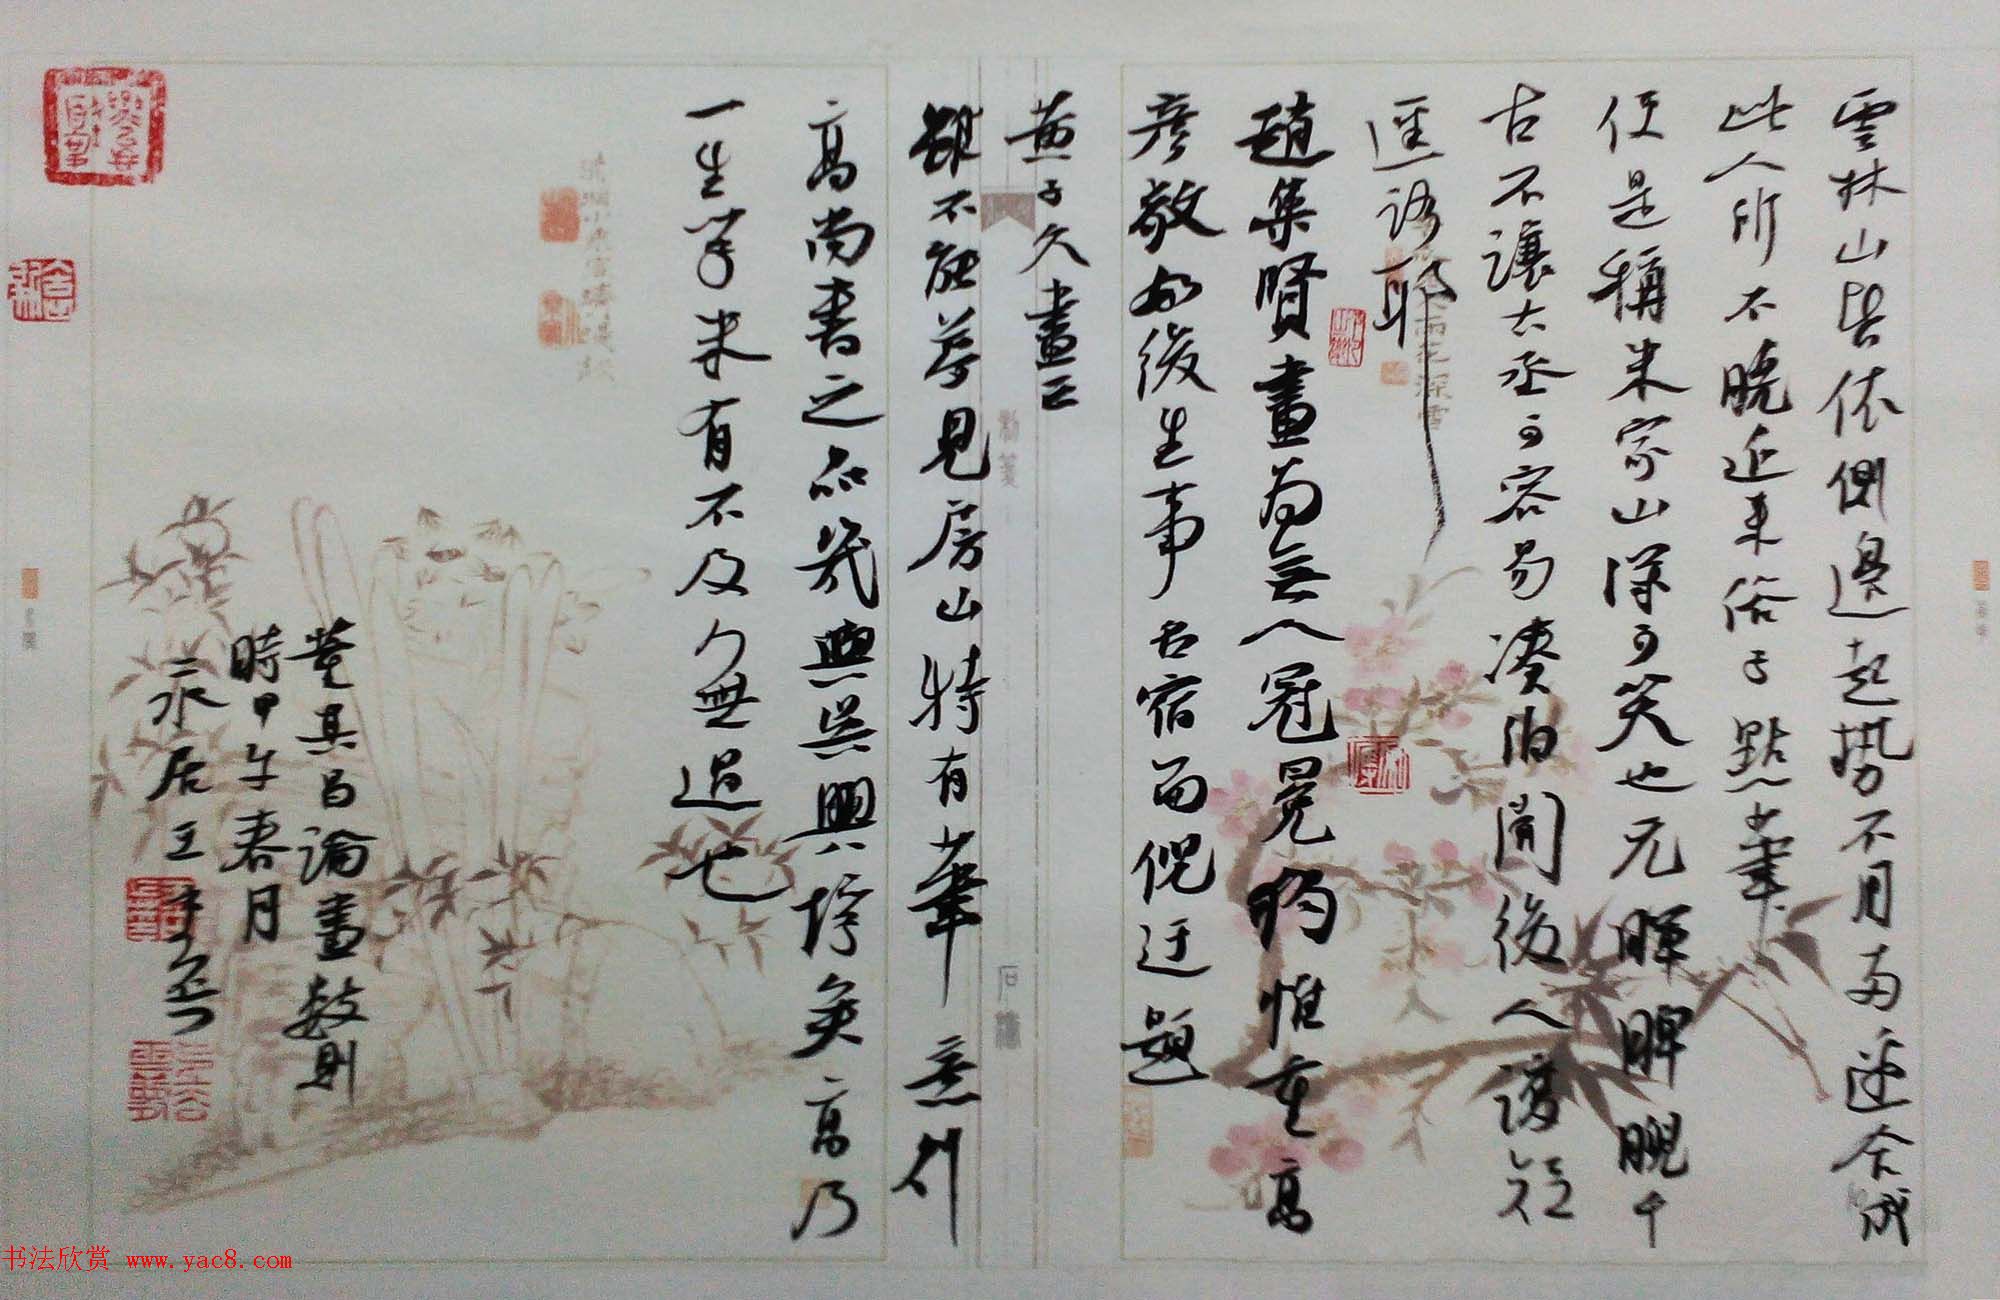 雲林山皆依側邊起勢不用兩邊合成
此人所不曉近來俗子點筆
便是稱米家山深可笑也元暉睥睨千
古不讓右丞可容易湊泊開後人護短
逕路耶
趙集賢畫為無人冠冕獨惟重高
彥敬如後生事名宿而倪迂題
黃子久畫云
雖不能夢見房山特有筆意則
高尚書之品幾與吳興埒矣高乃
一生學米有不及無過也
董其昌論畫數則
時甲午春月
二水居主
书法欣赏 www.yac8.com